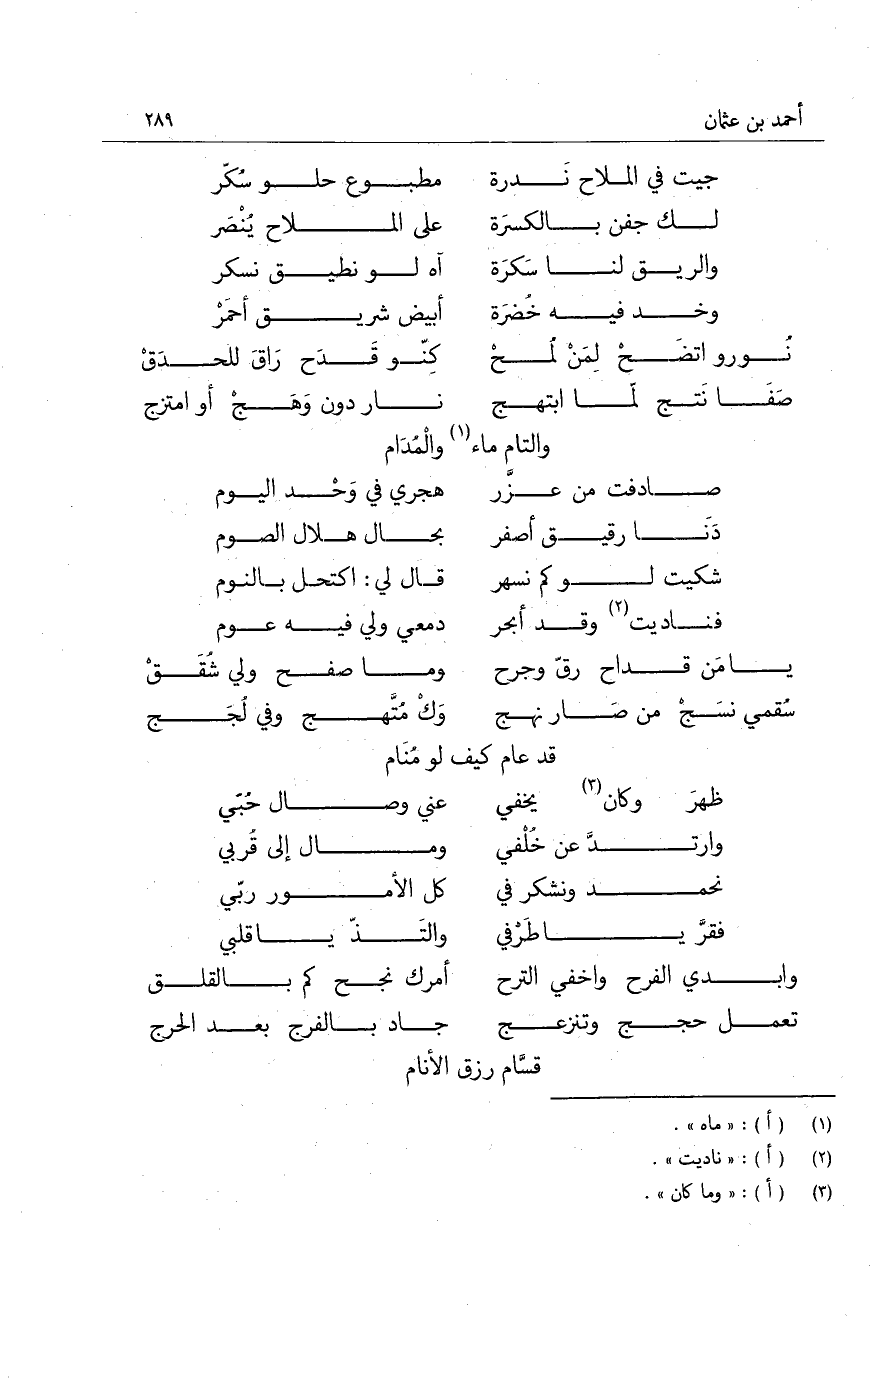 أحمد بن عثمان ٢٨٩
جيت في الملاح نَدرة مطبوع حلو سُكّر
لك جفن بالكسرَة على الملاح يُنْصَر
والريق لنا سَكرَة آه لو نطيق نسكر
وخد فيه خُضرَة أبيض شريق أحمَرْ
نُورو اتضَحْ لِمَنْ لُمحْ كنّو قَدَح رَاقَ للحدَقْ
صَفَا نَتج لمّا ابتهج نار دون وَهَجْ أو امتزج
والتام ماء(١) والْمُدَام
صادفت من عزَّر هجري في وَحْد اليوم
دَنَا رقيق أصفر بحال هلال الصوم
شكيت لو كم نسهر قال لي: اكتحل بالنوم
فناديت(٢) وقد أبحر دمعي ولي فيه عوم
يامَن قداح رقّ وجرح وما صفح ولي شُفَقْ
سُقمي نسَجْ من صَار نهج وَكْ مُتَّهج وفي لُجَج
قد عام كيف لو مُنَام
ظهرَ وكان(٣) يخفي عني وصال حُبّي
وارتدَّ عن خُلْفي ومال إلى قُربي
نحمد ونشكر في كل الأمور ربّي
فقرَّ ياطَرْفي والتَذّ ياقلبي
وابدي الفرح واخفي الترح أمرك نجح كم بالقلق
تعمل حجج وتنزعج جاد بالفرج بعد الحرج
قسَّام رزق الأنام
(١) (أ): «ماه».
(٢) (أ): «ناديت».
(٣) (أ): «وما كان».